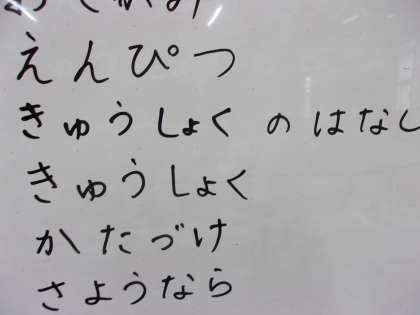 えんぴつ
きゅうしょく の はなし
きゅうしょく
かたづけ
さようなら